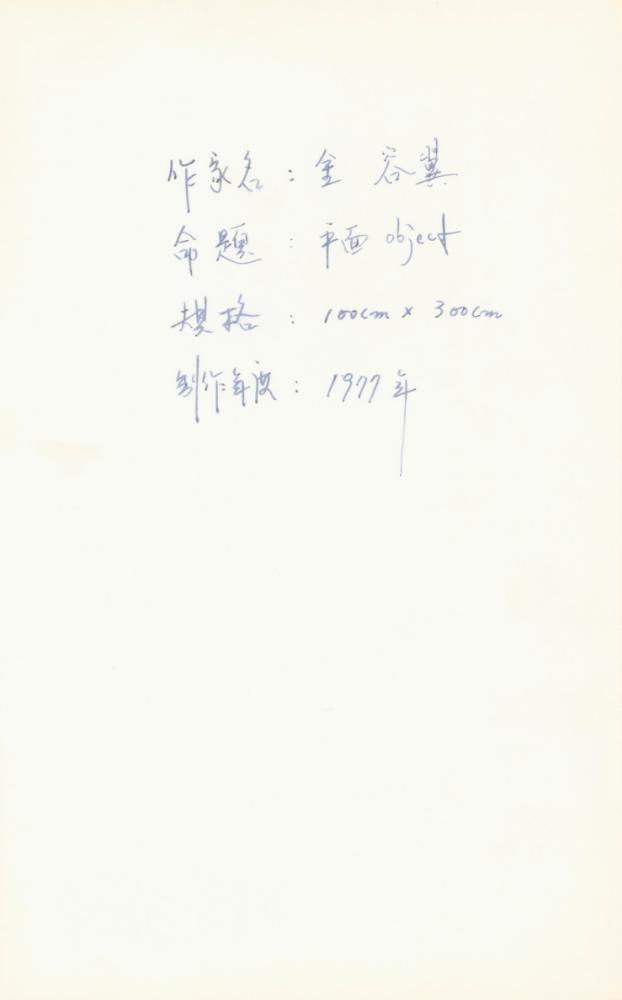 作家名 : 金 容翼
命題 : 平面 object
規格 : 100cm x 300cm
制作年度 : 1977年